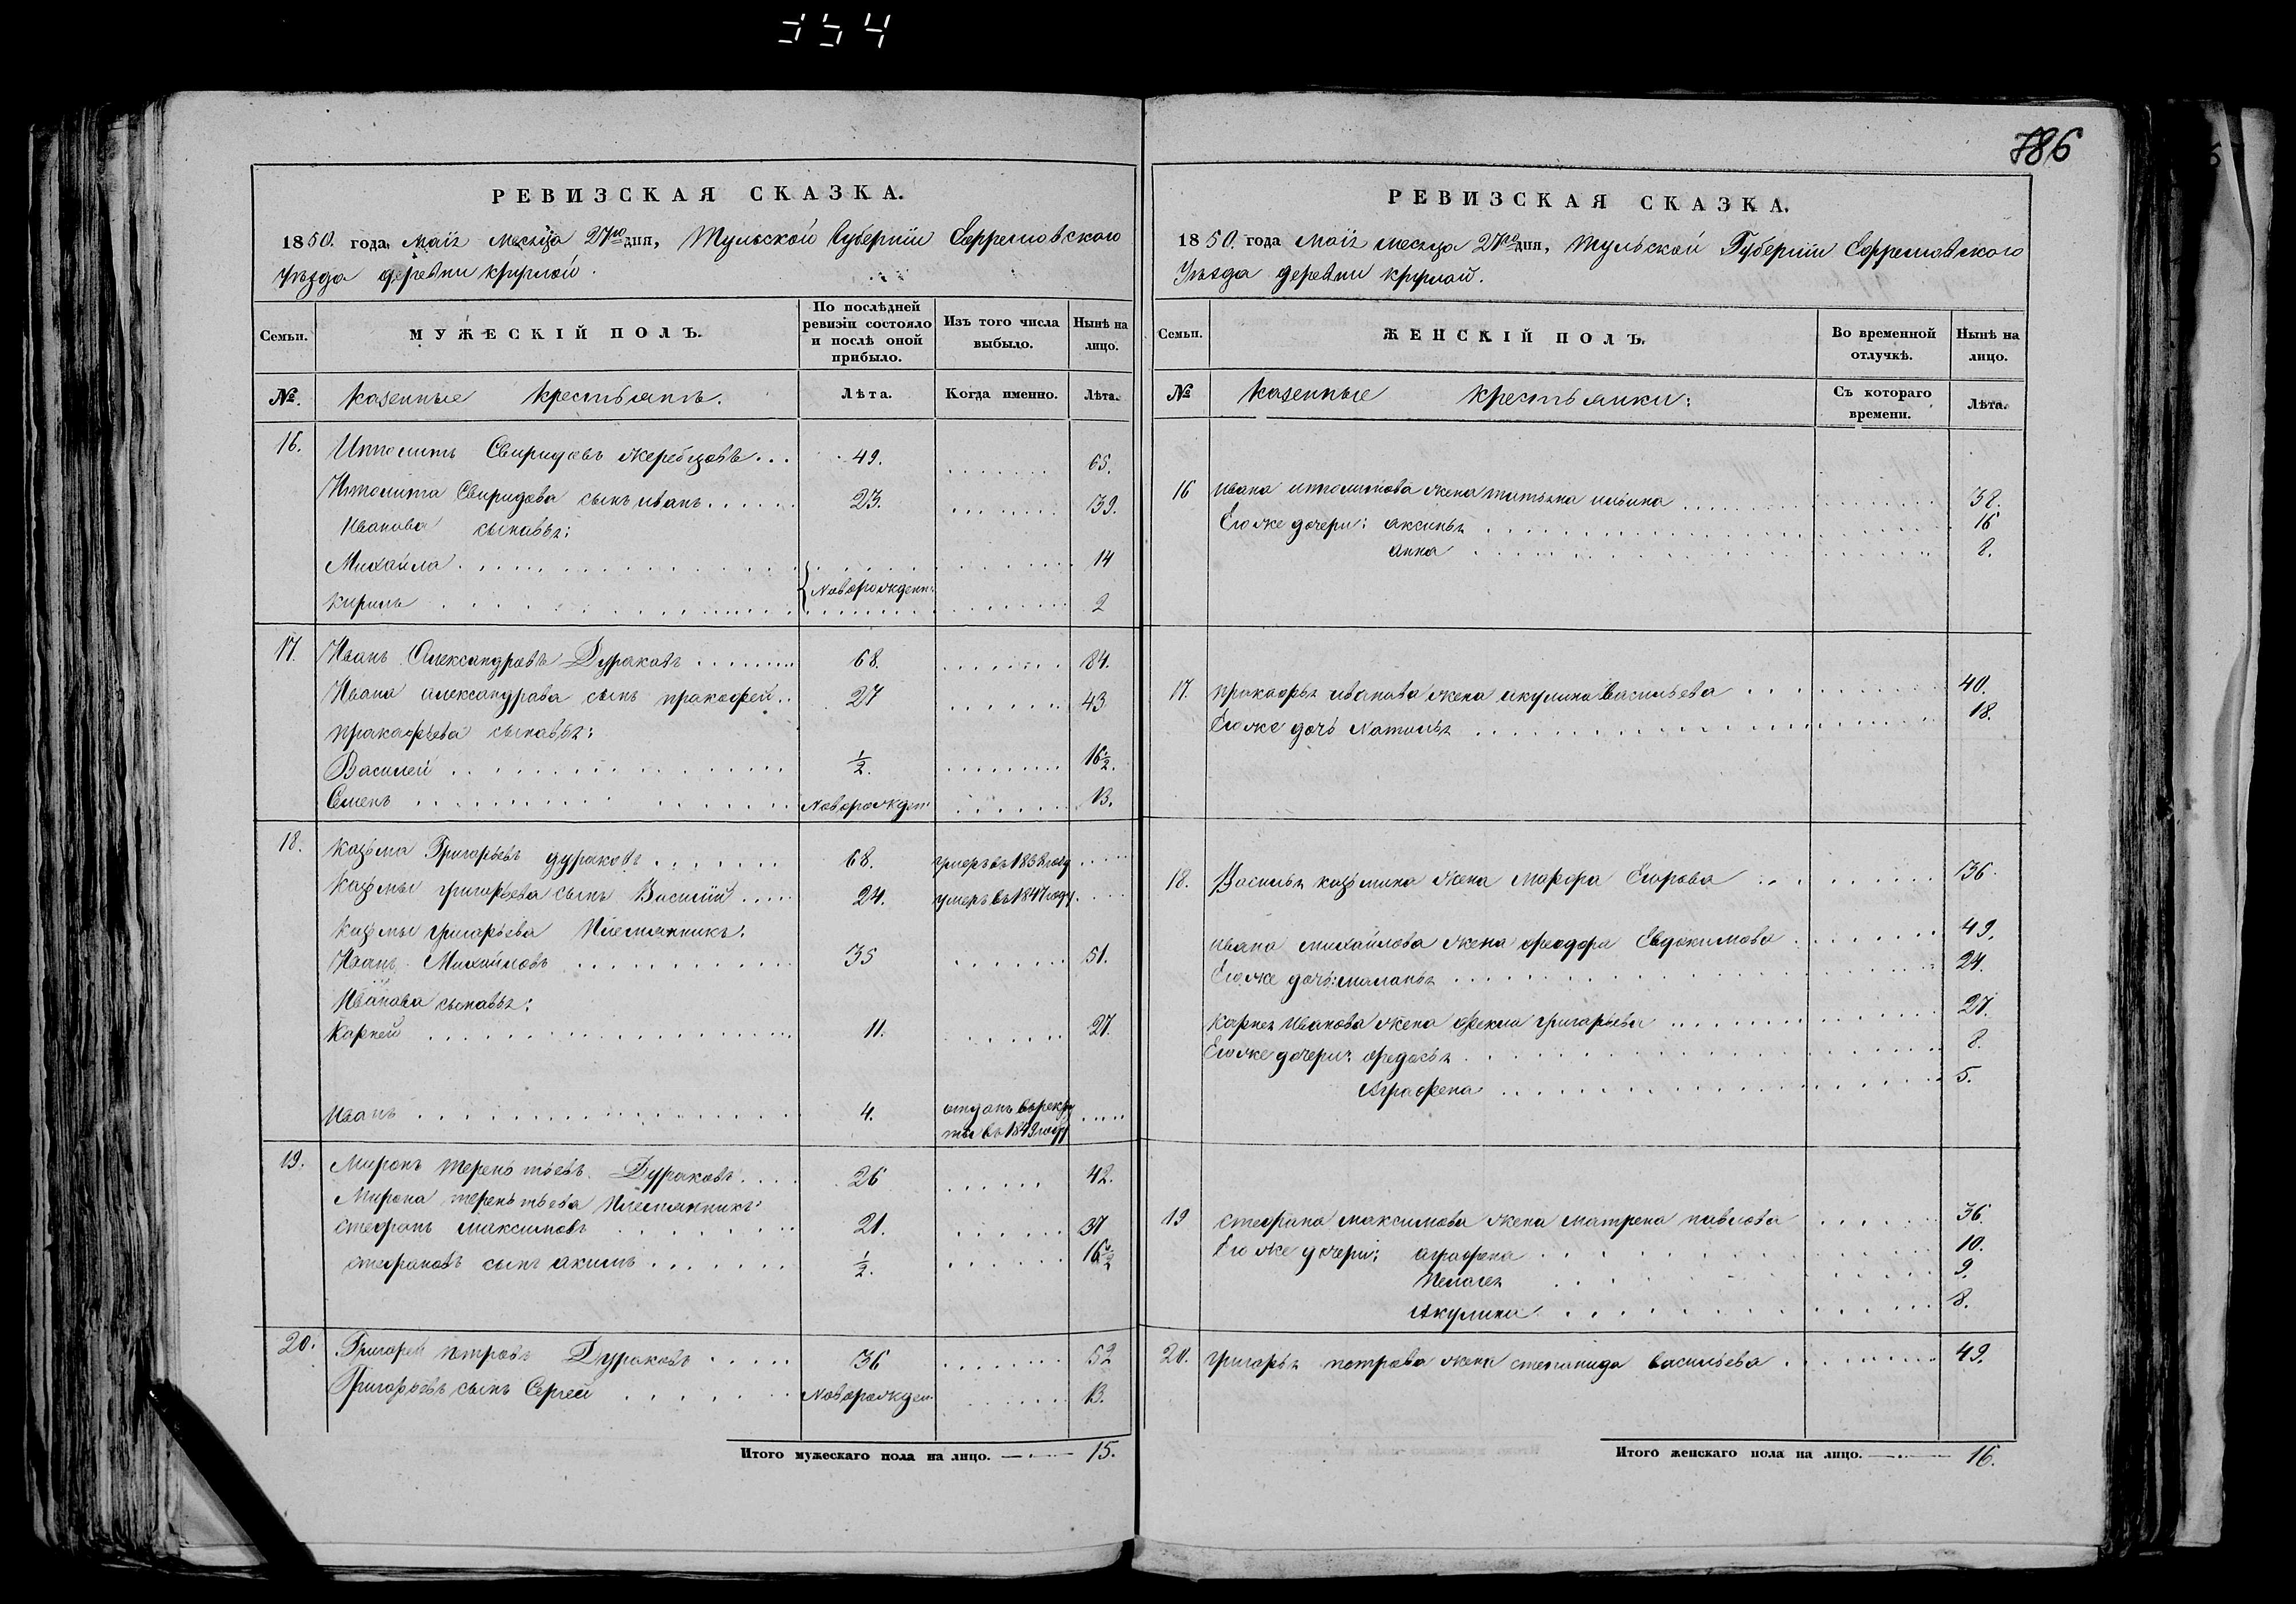 334
786
РЕВИЗСКАЯ СКАЗКА.
1850. года, маiя месяца 27го дня, Тульской Губернiи Ефремовского
Уѣзда деревни круглой.
Семьи.
МУЖЕСКІЙ ПОЛЪ.
По послѣдней ревизіи состояло и послѣ оной прибыло.
Изъ того числа выбыло.
Нынѣ на лицо.
№.
казенные крестьянъ.
Лѣта.
Когда именно.
Лѣта.
16. Иполитъ Свиридовъ жеребцовъ . . . 49. 65.
Иполита Свиридова сынъ иванъ . . . 23. 39.
Иванова сынавья:
Михайла . . . 14
Новорожден:
кирилъ . . . 2
17. Иванъ Александровъ Дураковъ . . . 68. 84.
Ивана александрава сынъ пракофей . . 27 43
пракафьева сынавья:
Василей . . . ½. 16½.
Семенъ . . . Новорожден 13.
18. казьма Григорьевъ дураковъ . . . 68. умеръ въ 1838 году
казьмы григорьева сынъ Василий . . . 24. умеръ въ 1847 году.
казьмы григарьева Племянникъ:
Иванъ Михайловъ . . . 35 51.
Иванова сынавья:
Карней . . . 11. 27.
Иванъ . . . 4. отданъ въ рекру
ты въ 1849 году
19. Миронъ терентьевъ Дураковъ . . . 26 42.
Мирона терентьева Племянникъ
стефанъ максимовъ . . . 21. 37
стефановъ сынъ акимъ . . . ½. 16½
20. Григорей петровъ Дураковъ . . . 36 52
Григорьевъ сынъ Сергей . . . Новорожден 13.
Итого мужескаго пола на лицо. 15.
РЕВИЗСКАЯ СКАЗКА.
1850. года маiя месяца 27го дня, Тульской Губернiи Ефремовского
Уѣзда деревни круглой.
Семьи.
ЖЕНСКІЙ ПОЛЪ.
Во временной отлучкѣ.
Нынѣ на лицо.
№
казенные крестьянки:
Съ котораго времени.
Лѣта.
16 ивана иполитова жена татьяна ильина . . . 38.
Ево же дочери: аксинья . . . 16
анна . . . 8.
17. пракафья иванова жена акулина Васильева . . . 40.
Ево же дочь Наталья . . . 18.
18. Василья казьмина жена Марфа Егорова . . . 36.
ивана михайлова жена феодора Евдокимова . . . 49.
Ево же дочь: маланья . . . 24.
карнея Иванова жена фекла григарьева . . . 27.
Ево же дочери: федосья . . . 8.
Аграфена . . . 5.
19 стефана максимова жена матрена павлова . . . 36.
Ево же дочери: аграфена . . . 10.
Пелагея . . . 9.
Акулина . . . 8.
20. григорья петрова жена степанида васильева . . . 49.
Итого женскаго пола на лицо. 16.